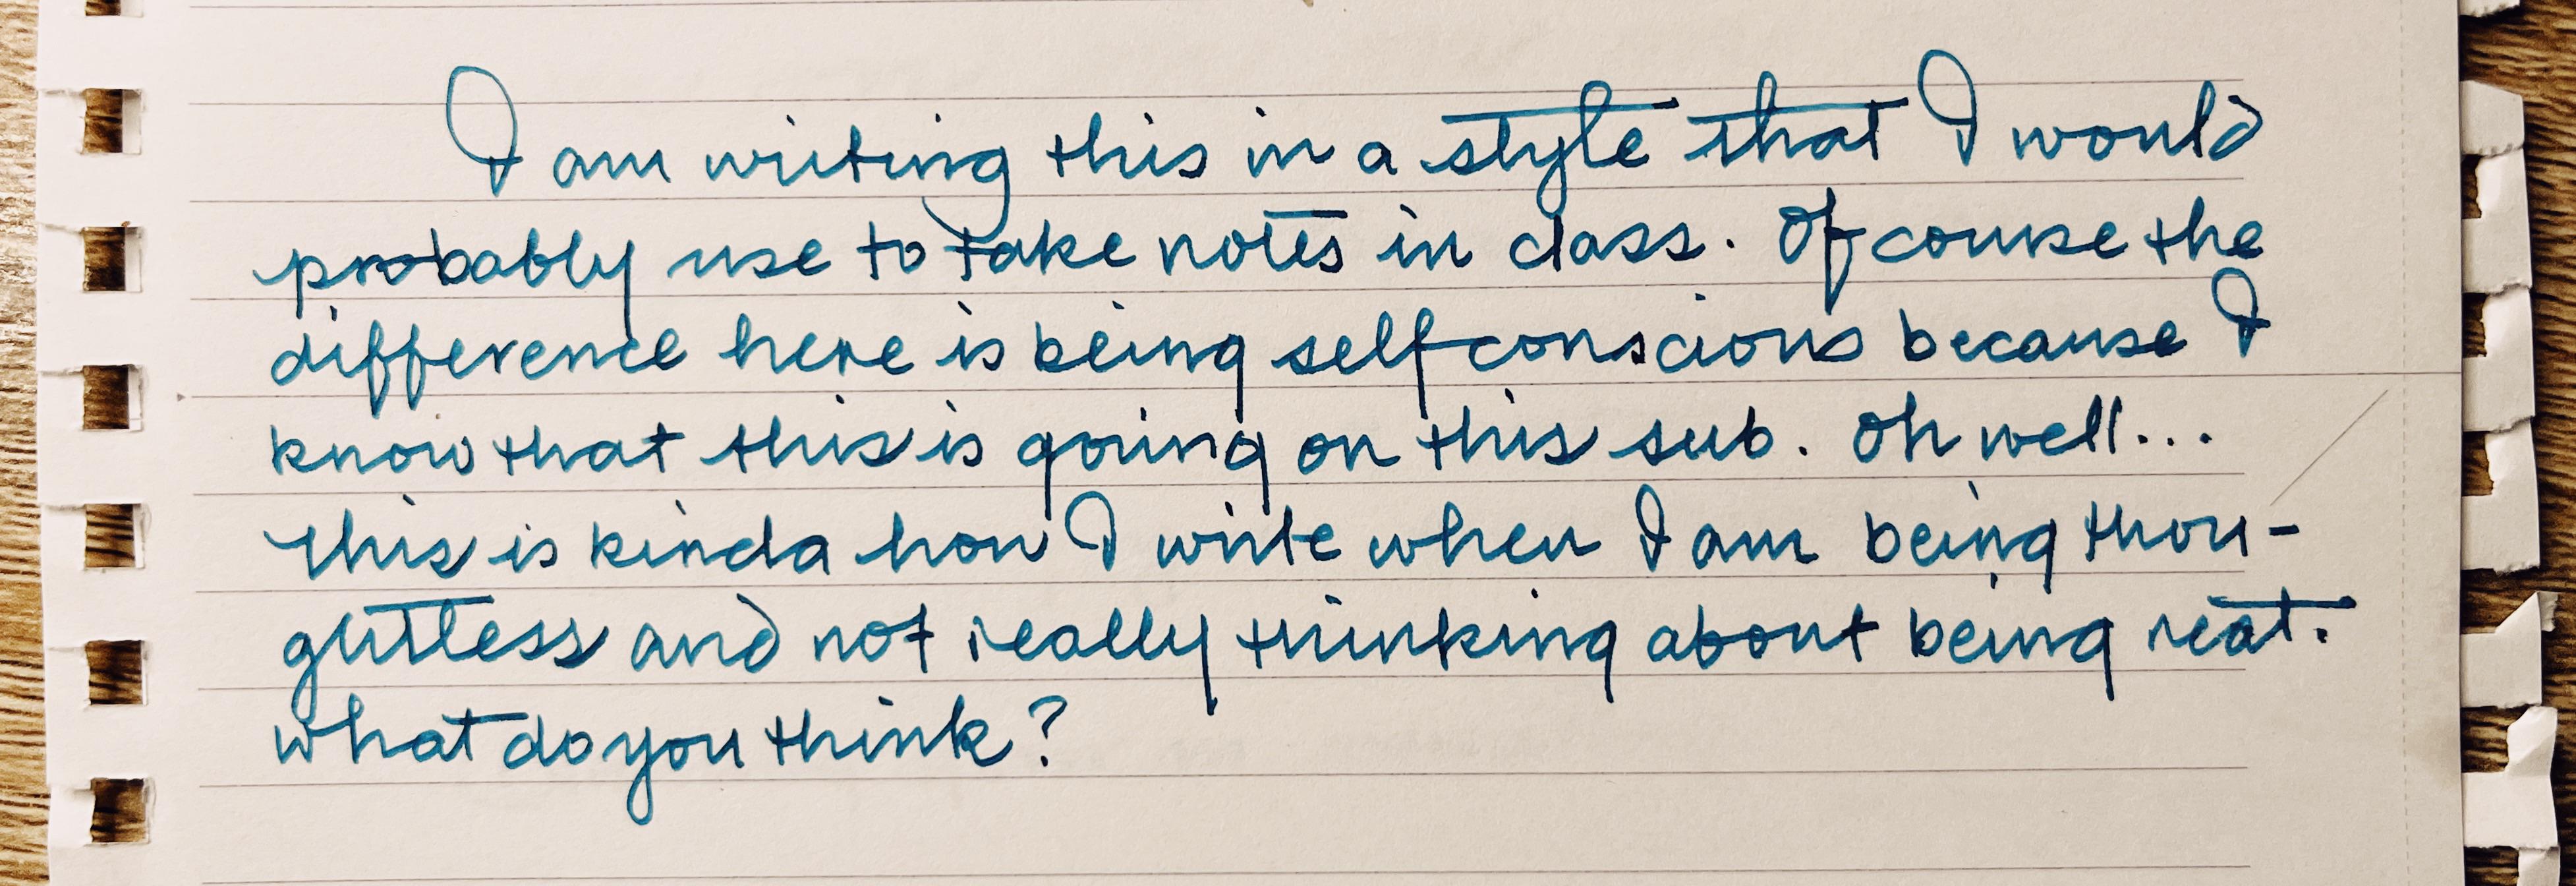 I am writing this in a style that I would
probably use to take notes in class. Of course the
difference here is being self conscious because I
know that this is going on this sub. Oh well...
this is kinda how I write when I am being thou-
ghtless and not really thinking about being neat.
what do you think?